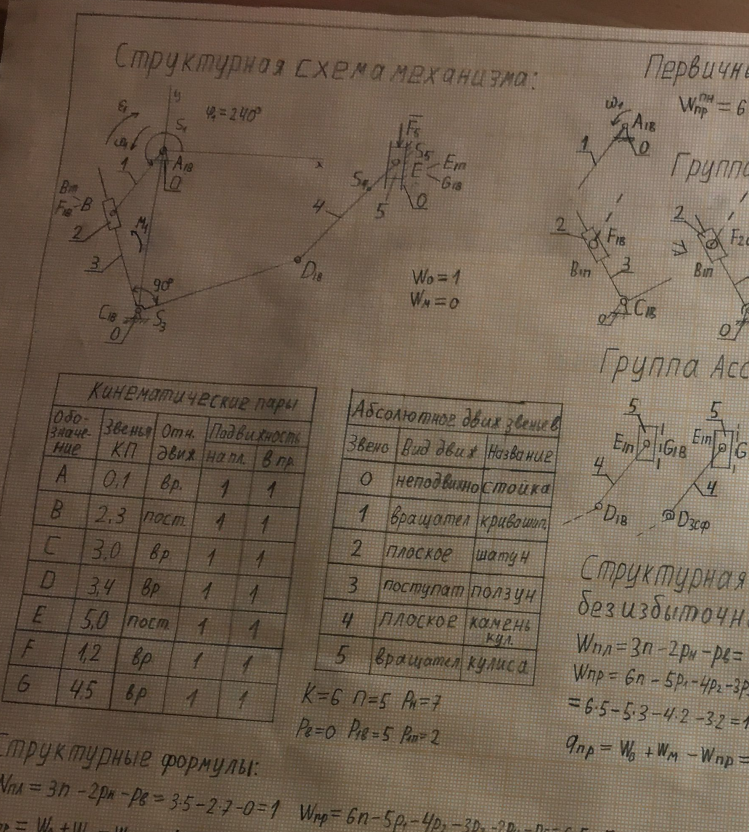 Структурная схема механизма:
y
φ₁=240°
S₁
ω₁
A₁в
x
1
0
B₁п
F₁в
B
2
M₃
3
90°
C₁в
S₃
0
F̅₅
S₅
E
E₁п
G₁в
S₄
5
0
4
D₁в
W₀=1
Wм=0
Первичны
Wпр^пн=6
ω₁
A₁в
1
0
Группа
2
F₁в
B₁п
3
C₁в
0
⇒
2
B₁п
Группа Асс
5
E₁п
G₁в
4
D₁в
5
E₁п
G
4
D₃сф
Кинематические пары
Обо-значе-ние Звенья КП Отн. движ Подвижность
на пл. в пр.
A 0,1 вр. 1 1
B 2,3 пост. 1 1
C 3,0 вр 1 1
D 3,4 вр 1 1
E 5,0 пост. 1 1
F 1,2 вр 1 1
G 4,5 вр 1 1
Абсолютное движ звеньев
Звено Вид движ Название
0 неподвижно стойка
1 вращател кривошип
2 плоское шатун
3 поступат ползун
4 плоское камень кул.
5 вращател кулиса
K=6 n=5 Pн=7
Pв=0 P₁в=5 P₁п=2
Структурная
без избыточн
Wпл=3n-2pн-pв=
Wпр=6n-5p₁-4p₂-3p
=6·5-5·3-4·2-3·2=1
qпр=W₀+Wм-Wпр=
Структурные формулы:
Wпл=3n-2pн-pв=3·5-2·7-0=1
Wпр=6n-5p₁-4p₂-3p₃